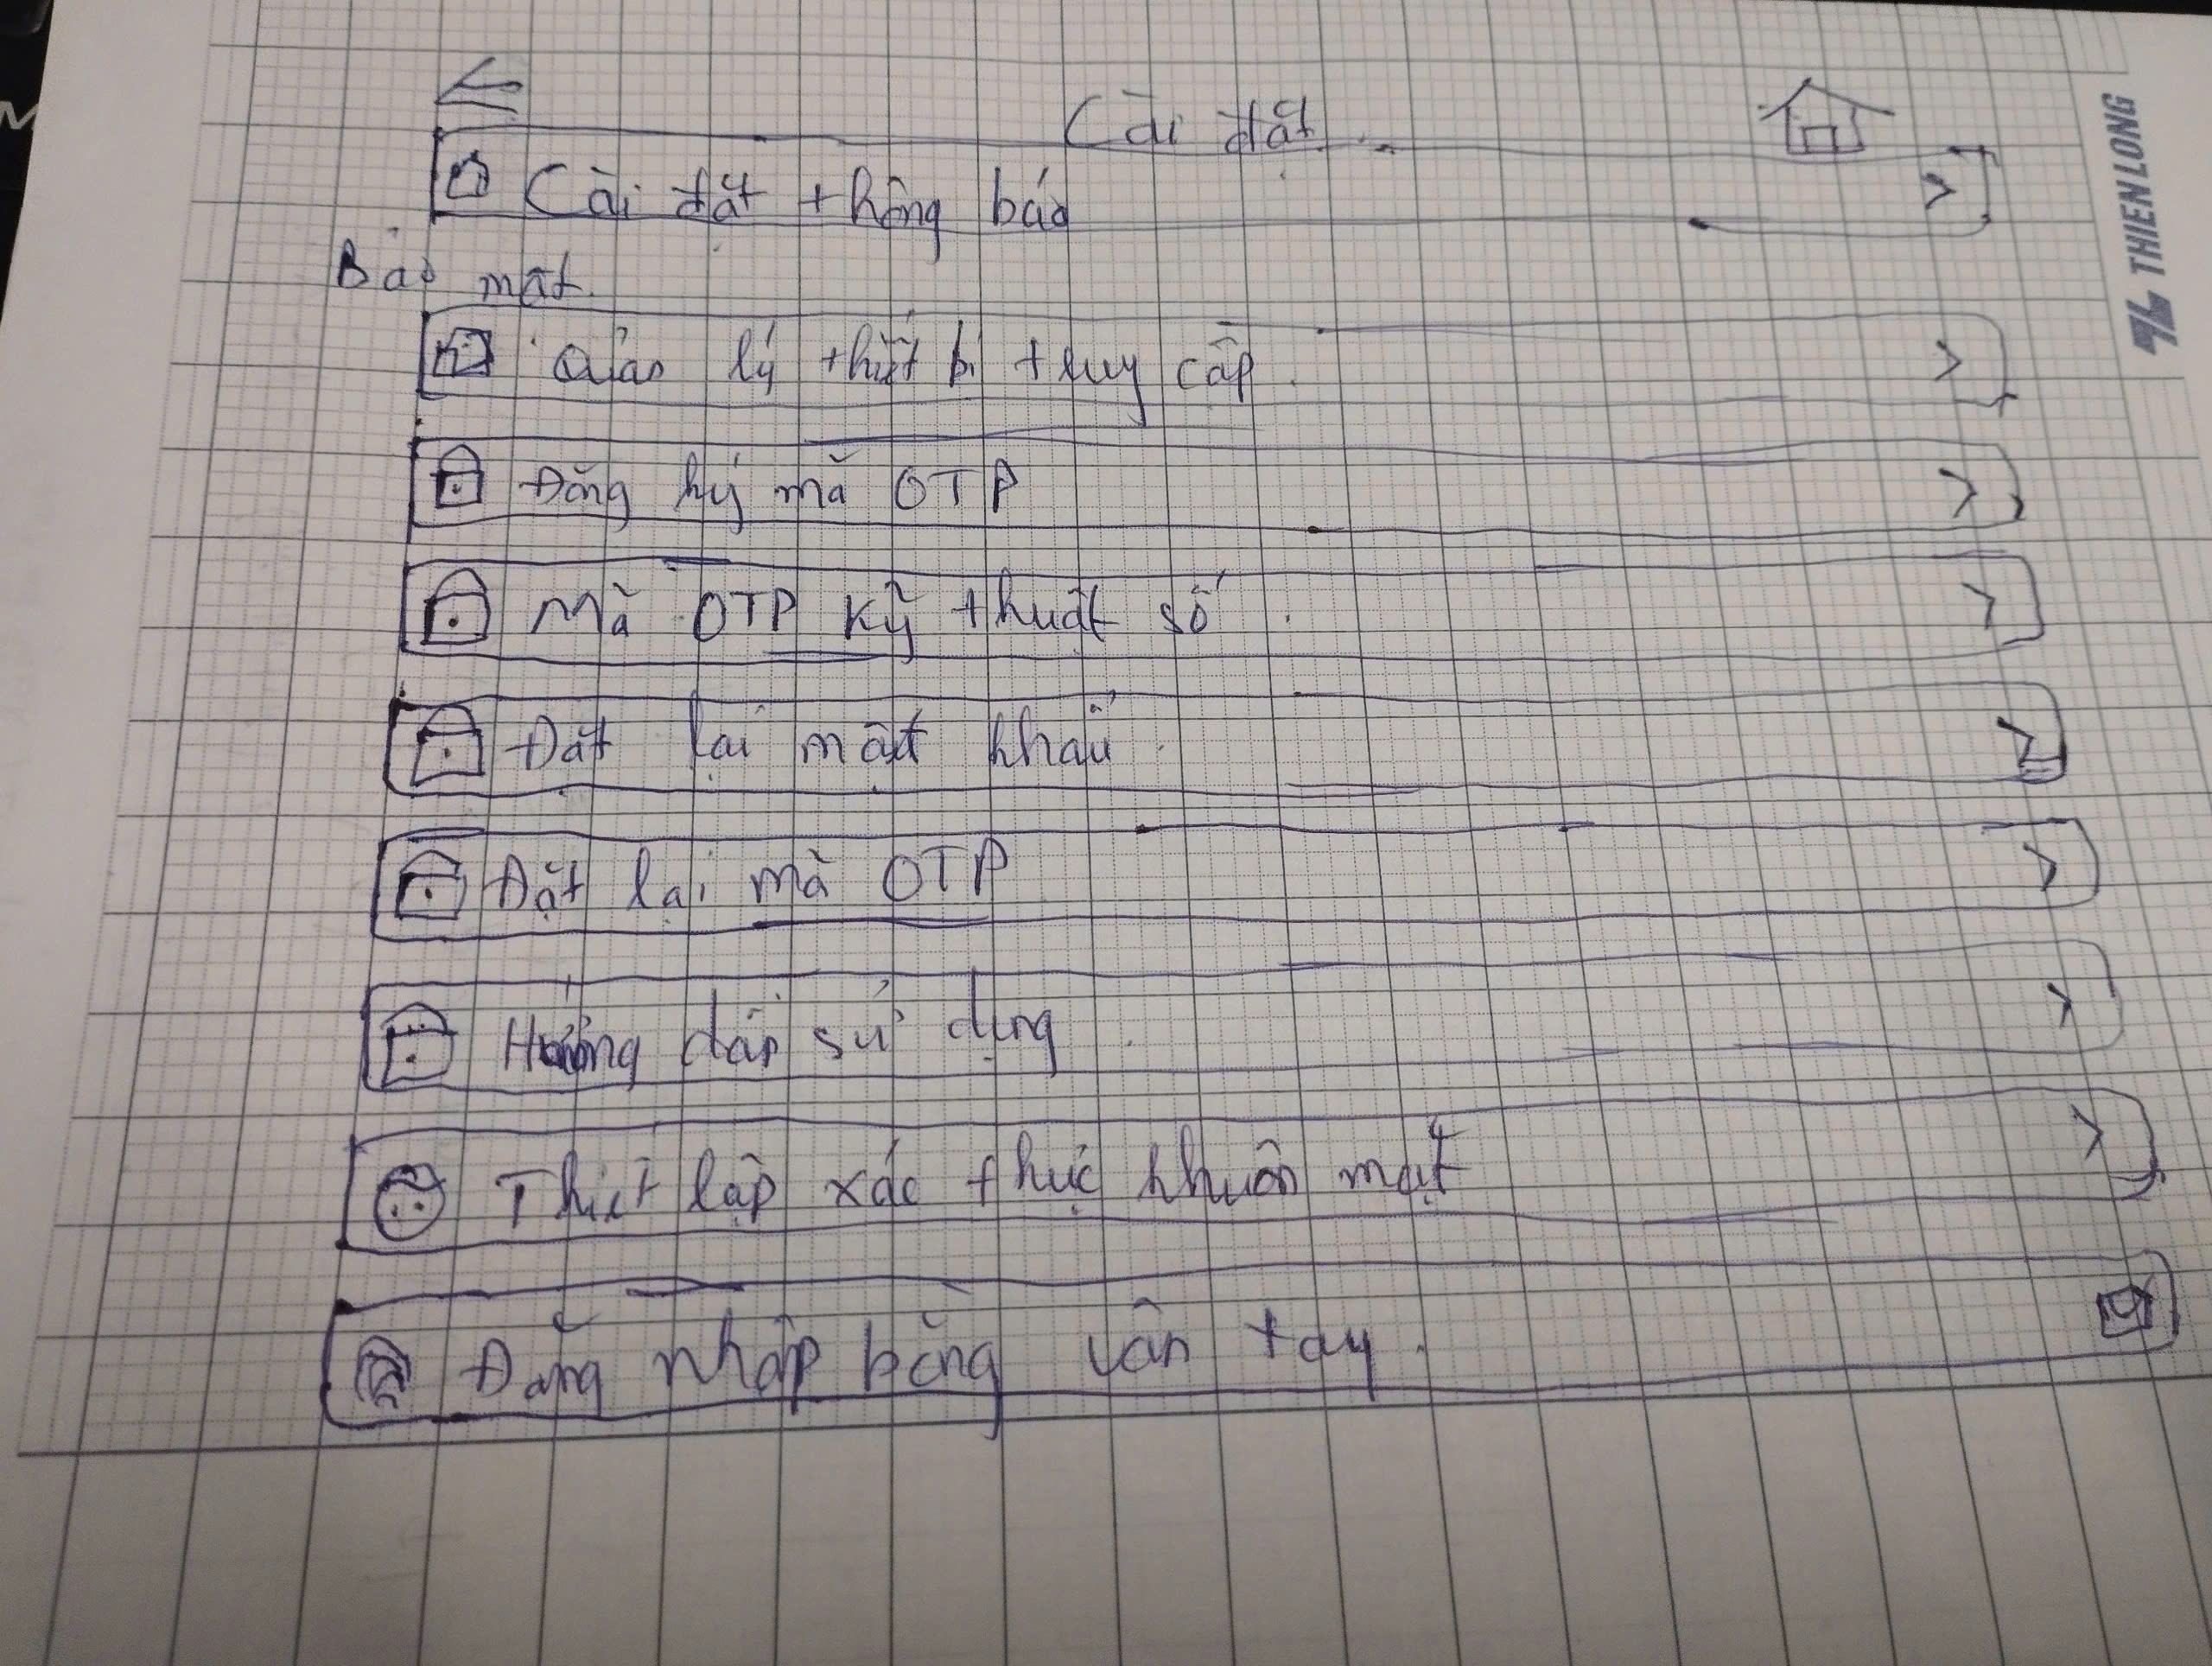 Cài đặt
Cài đặt thông báo
Bảo mật
Quản lý thiết bị truy cập
Đăng ký mã OTP
Mã OTP kỹ thuật số
Đặt lại mật khẩu
Đặt lại mã OTP
Hướng dẫn sử dụng
Thiết lập xác thực khuôn mặt
Đăng nhập bằng vân tay
THIEN LONG